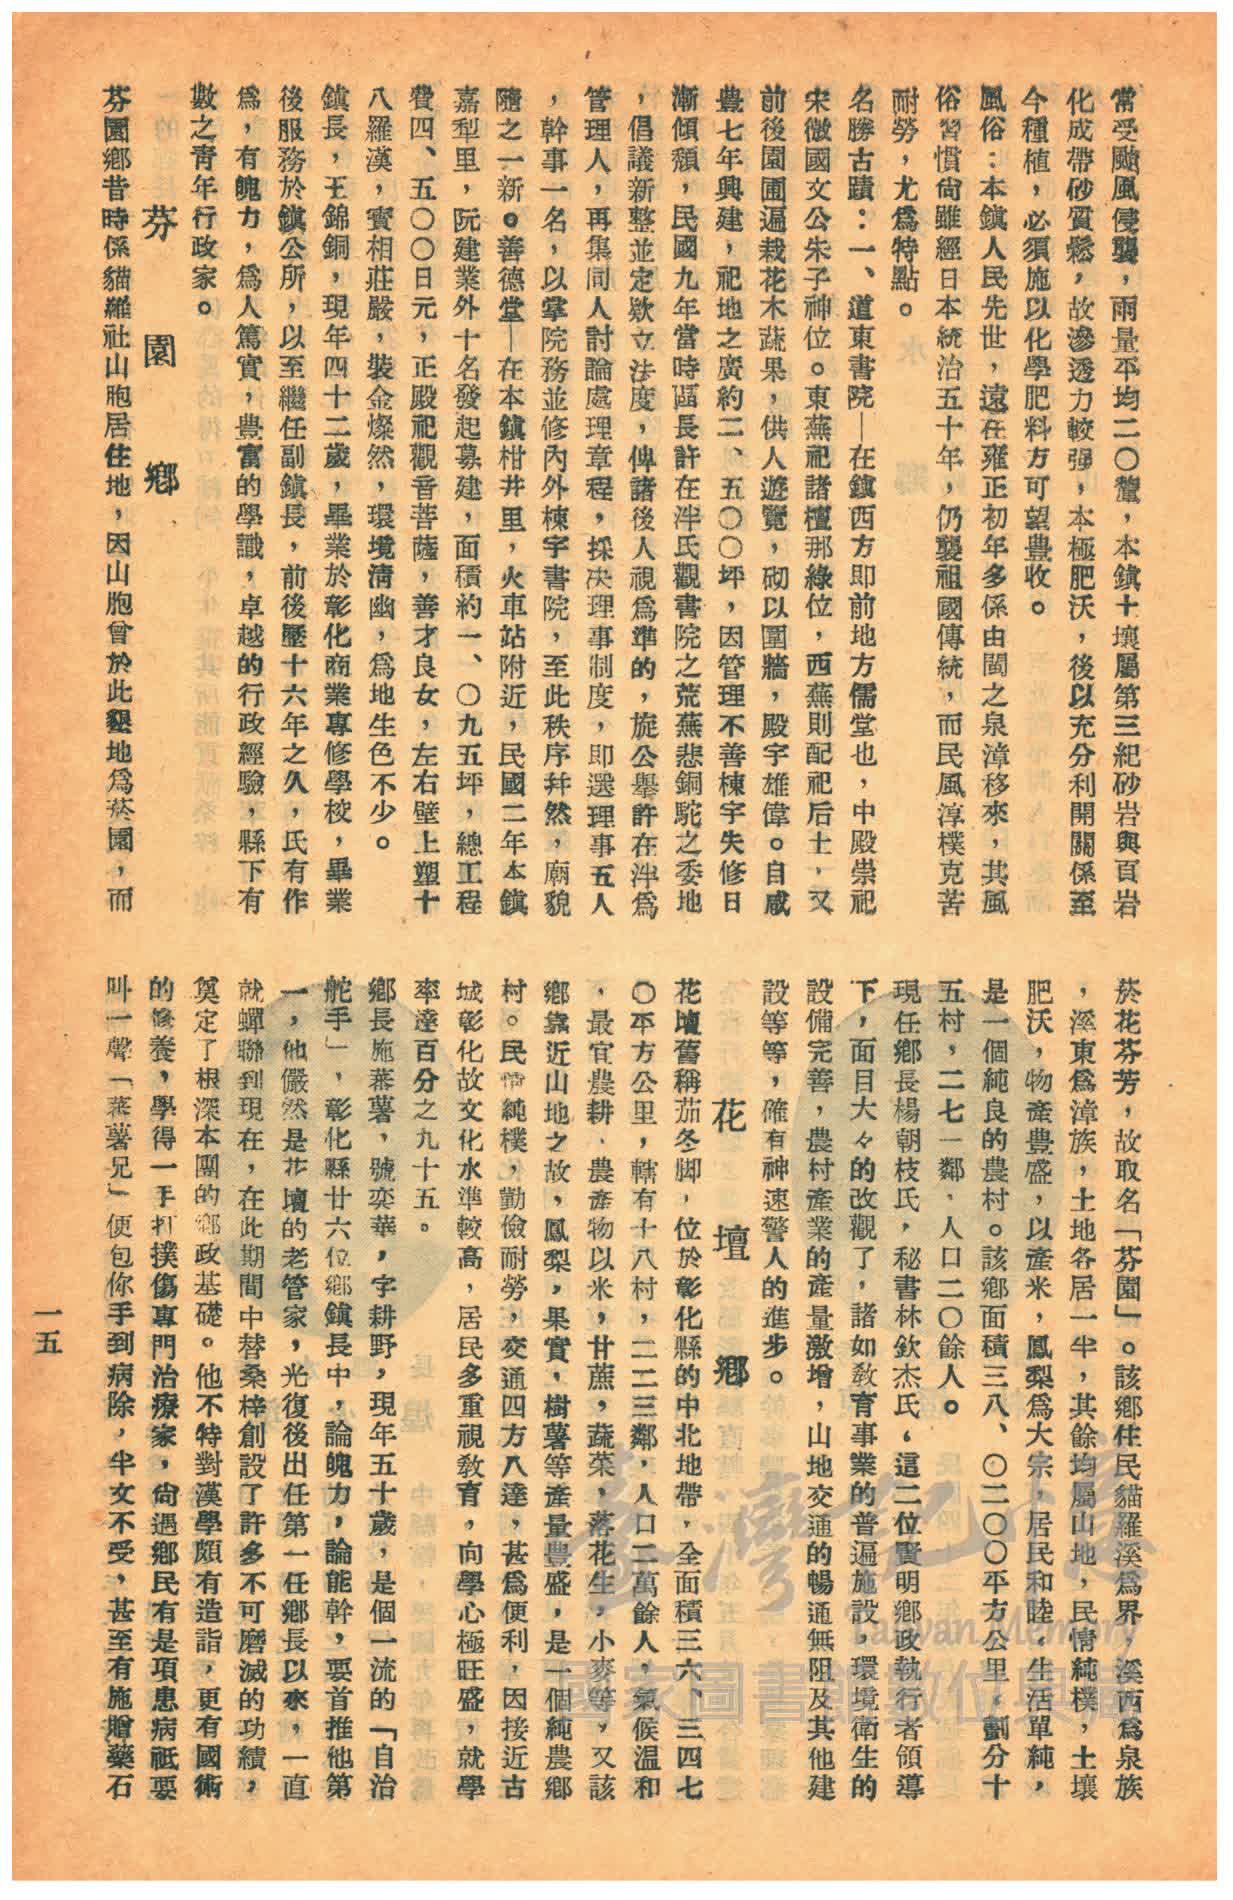 常受颱風侵襲，雨量平均二〇釐，本鎮土壤屬第三紀砂岩與頁岩
化成帶砂質鬆，故滲透力較强，本極肥沃，後以充分利開關係至
今種植，必須施以化學肥料方可望豊收。
風俗：本鎮人民先世，遠在雍正初年多係由閩之泉漳移來，其風
俗習慣尙雖經日本統治五十年，仍襲祖國傳統，而民風淳樸克苦
耐勞，尤爲特點。
名勝古蹟：一、道東書院—在鎮西方即前地方儒堂也，中殿崇祀
宋徽國文公朱子神位。東蕪祀諸檀那綠位，西蕪則配祀后土，又
前後園圃遍栽花木蔬果，供人遊覽，砌以圍牆，殿宇雄偉。自咸
豊七年興建，祀地之廣約二、五〇〇坪，因管理不善棟宇失修日
漸傾頹，民國九年當時區長許在泮氏觀書院之荒蕪悲銅駝之委地
，倡議新整並定欵立法度，俾諸後人視爲準的，旋公舉許在泮爲
管理人，再集同人討論處理章程，採决理事制度，即選理事五人
，幹事一名，以掌院務並修內外棟宇書院，至此秩序井然，廟貌
隨之一新。善德堂—在本鎮柑井里，火車站附近，民國二年本鎮
嘉犁里，阮建業外十名發起募建，面積約一、〇九五坪，總工程
費四、五〇〇日元，正殿祀觀音菩薩，善才良女，左右壁上塑十
八羅漢，寳相莊嚴，裝金燦然，環境淸幽，爲地生色不少。
鎮長，王錦銅，現年四十二歲，畢業於彰化商業專修學校，畢業
後服務於鎮公所，以至繼任副鎮長，前後歷十六年之久，氏有作
爲，有魄力，爲人篤實，豊富的學識，卓越的行政經驗，縣下有
數之靑年行政家。
芬園鄉
芬園鄉昔時係貓羅社山胞居住地，因山胞曾於此墾地爲菸園，而
菸花芬芳，故取名「芬園」。該鄉住民貓羅溪爲界，溪西爲泉族
，溪東爲漳族，土地各居一半，其餘均屬山地，民情純樸，土壤
肥沃，物產豊盛，以產米，鳳梨爲大宗，居民和陸，生活單純，
是一個純良的農村。該鄉面積三八、〇二〇〇平方公里，劃分十
五村，二七一鄰，人口二〇餘人。
現任鄉長楊朝枝氏，秘書林欽杰氏，這二位賢明鄉政執行者領導
下，面目大々的改觀了，諸如敎育事業的普遍施設，環境衛生的
設備完善，農村產業的產量激增，山地交通的暢通無阻及其他建
設等等，確有神速警人的進步。
花壇鄉
花壇舊稱茄冬脚，位於彰化縣的中北地帶，全面積三六、三四七
〇平方公里，轄有十八村，二二三鄰，人口二萬餘人，氣候温和
，最宜農耕，農產物以米，甘蔗，蔬菜，落花生，小麥等，又該
鄉靠近山地之故，鳳梨，果實，樹薯等產量豊盛，是一個純農鄉
村。民情純樸，勤儉耐勞，交通四方八達，甚爲便利，因接近古
城彰化故文化水準較高，居民多重視敎育，向學心極旺盛，就學
率達百分之九十五。
鄉長施蕃薯，號奕華，字耕野，現年五十歲，是個一流的「自治
舵手」，彰化縣廿六位鄉鎮長中，論魄力，論能幹，要首推他第
一，他儼然是花壇的老管家，光復後出任第一任鄉長以來，一直
就蟬聯到現在，在此期間中替桑梓創設了許多不可磨滅的功績，
奠定了根深本團的鄉政基礎。他不特對漢學頗有造詣，更有國術
的修養，學得一手打撲傷專門治療家，尙遇鄉民有是項患病祗要
叫一聲「蕃薯兄」便包你手到病除，半文不受，甚至有施贈藥石
一五
臺灣記憶
Taiwan Memory
國家圖書館數位典藏